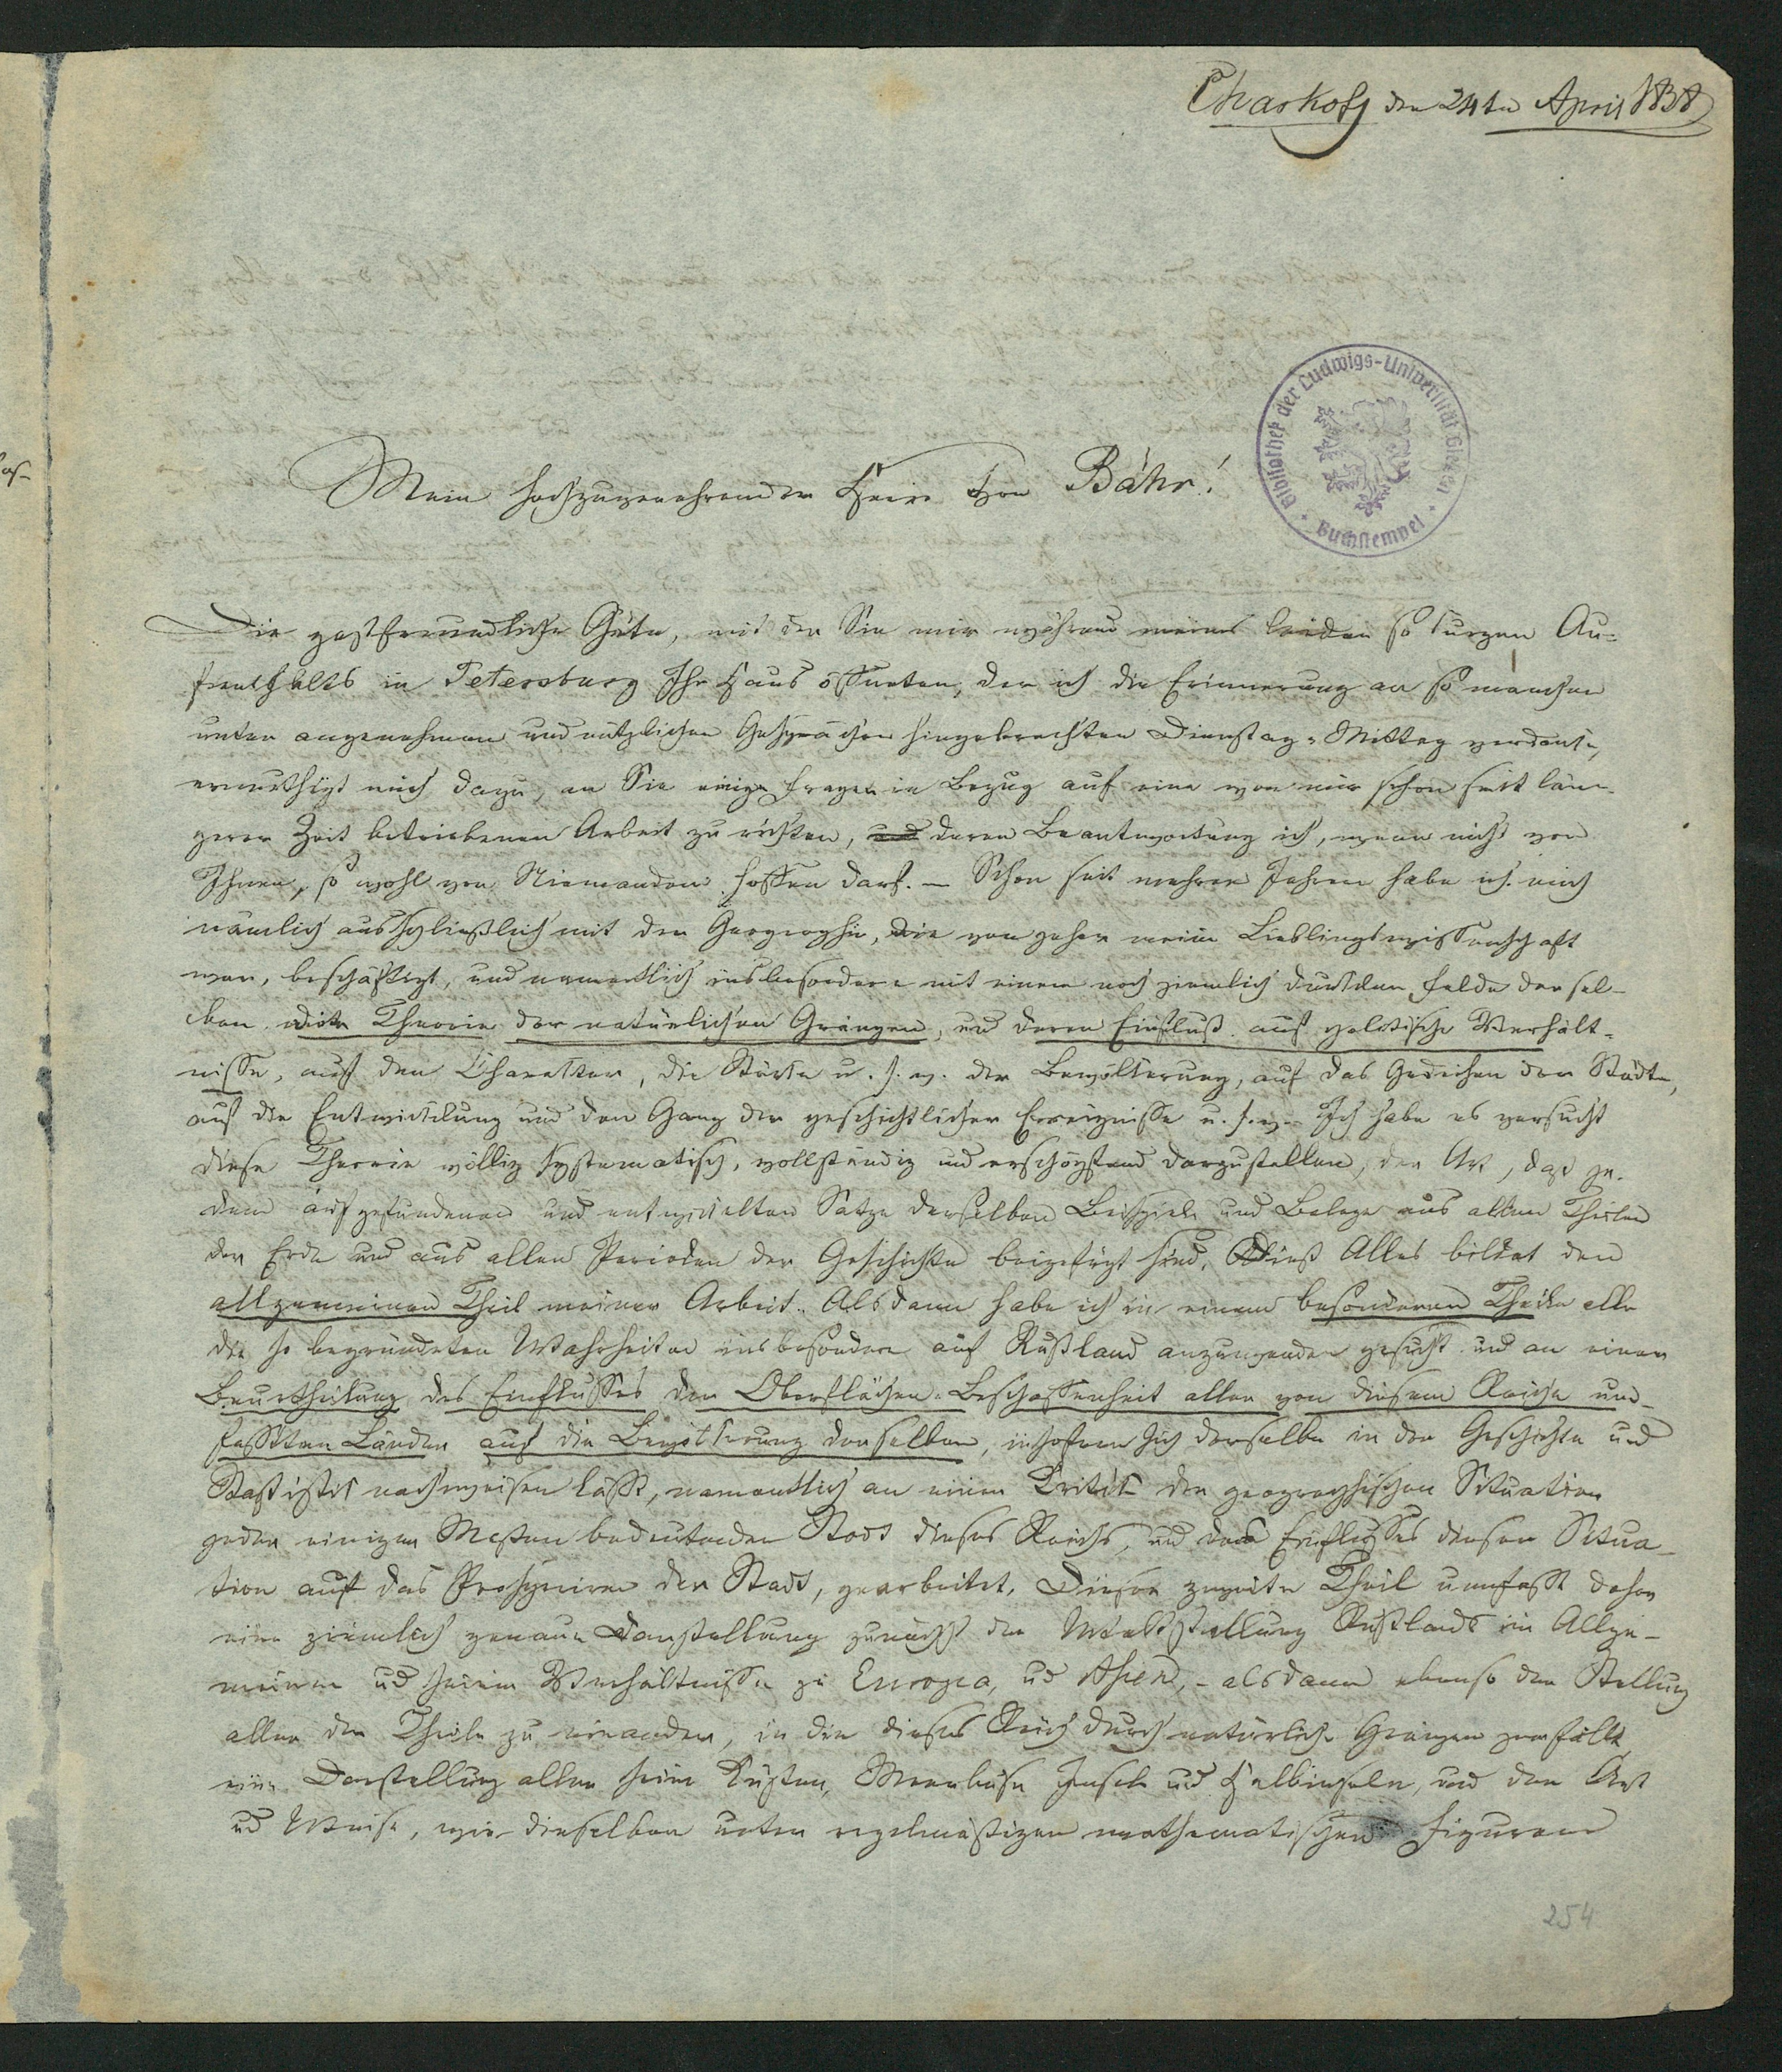 Charkoff den 24ten April 1838
Bibliothek der Ludwigs-Universität Giessen
Buchstempel
Mein hochzuverehrender Herr von Bähr!
Die gastfreundliche Güte, mit der Sie mir während meines leider so kurzen Au-
fenthalts in Petersburg Ihr Haus öffneten, der ich die Erinnerung an so manchen
unter angenehmen und nützlichen Gesprächen hingebrachten Dienstag-Mittag verdanke,
ermuthigt mich dazu, an Sie einige Fragen in Bezug auf eine von mir schon seit län-
gerer Zeit betriebenen Arbeit zu richten, deren Beantwortung ich, wenn nicht von
Ihnen, so wohl von Niemandem hoffen darf. – Schon seit mehren Jahren habe ich mich
nämlich ausschließlich mit der Geographie, die von jeher meine Lieblingswissenschaft
war, beschäftigt, und namentlich insbesondere mit einem noch ziemlich dunklen Felde dersel-
ben der Theorie der natürlichen Gränzen, und deren Einfluß auf politische Verhält-
nisse, auf den Charakter, die Stärke u. s. w. der Bevölkerung, auf das Gedeihen der Städte,
auf die Entwicklung und den Gang der geschichtlichen Ereignisse u. s. w. – Ich habe es versucht
diese Theorie völlig systematisch, vollständig und erschöpfend darzustellen, der Art, daß je-
dem aufgefundenen und entwickelten Satze derselben Beispiele und Belege aus allen Theilen
der Erde und aus allen Perioden der Geschichte beigefügt sind. Dieß Alles bildet den
allgemeinen Theil meiner Arbeit. Alsdann habe ich in einem besonderen Theile alle
die so begründeten Wahrheiten insbesondere auf Rußland anzuwenden gesucht und an einer
Beurtheilung des Einflusses der Oberflächen-Beschaffenheit aller von diesem Reiche um-
faßten Länder auf die Bevölkerung derselben, insofern sich derselbe in der Geschichte und
Statistik nachweisen läßt, namentlich an einer Kritik der geographischen Situation
jeder einiger Maßen bedeutenden Stadt dieses Reichs, und des Einflusses dieser Situa-
tion auf das Prosperiren der Stadt, gearbeitet. Dieser zweite Theil umfaßt daher
eine ziemlich genaue Darstellung zunächst der Weltstellung Rußlands im Allge-
meinen und seiner Verhältnisse zu Europa, und Asien, – alsdann ebenso der Stellung
aller der Theile zu einander, in die dieses Reich durch natürliche Gränzen zerfällt
eine Darstellung aller seiner Küsten, Meerbusen Inseln und Halbinseln, und der Art
und Weise, wie dieselben unter regelmäßigen mathematischen Figuren
254